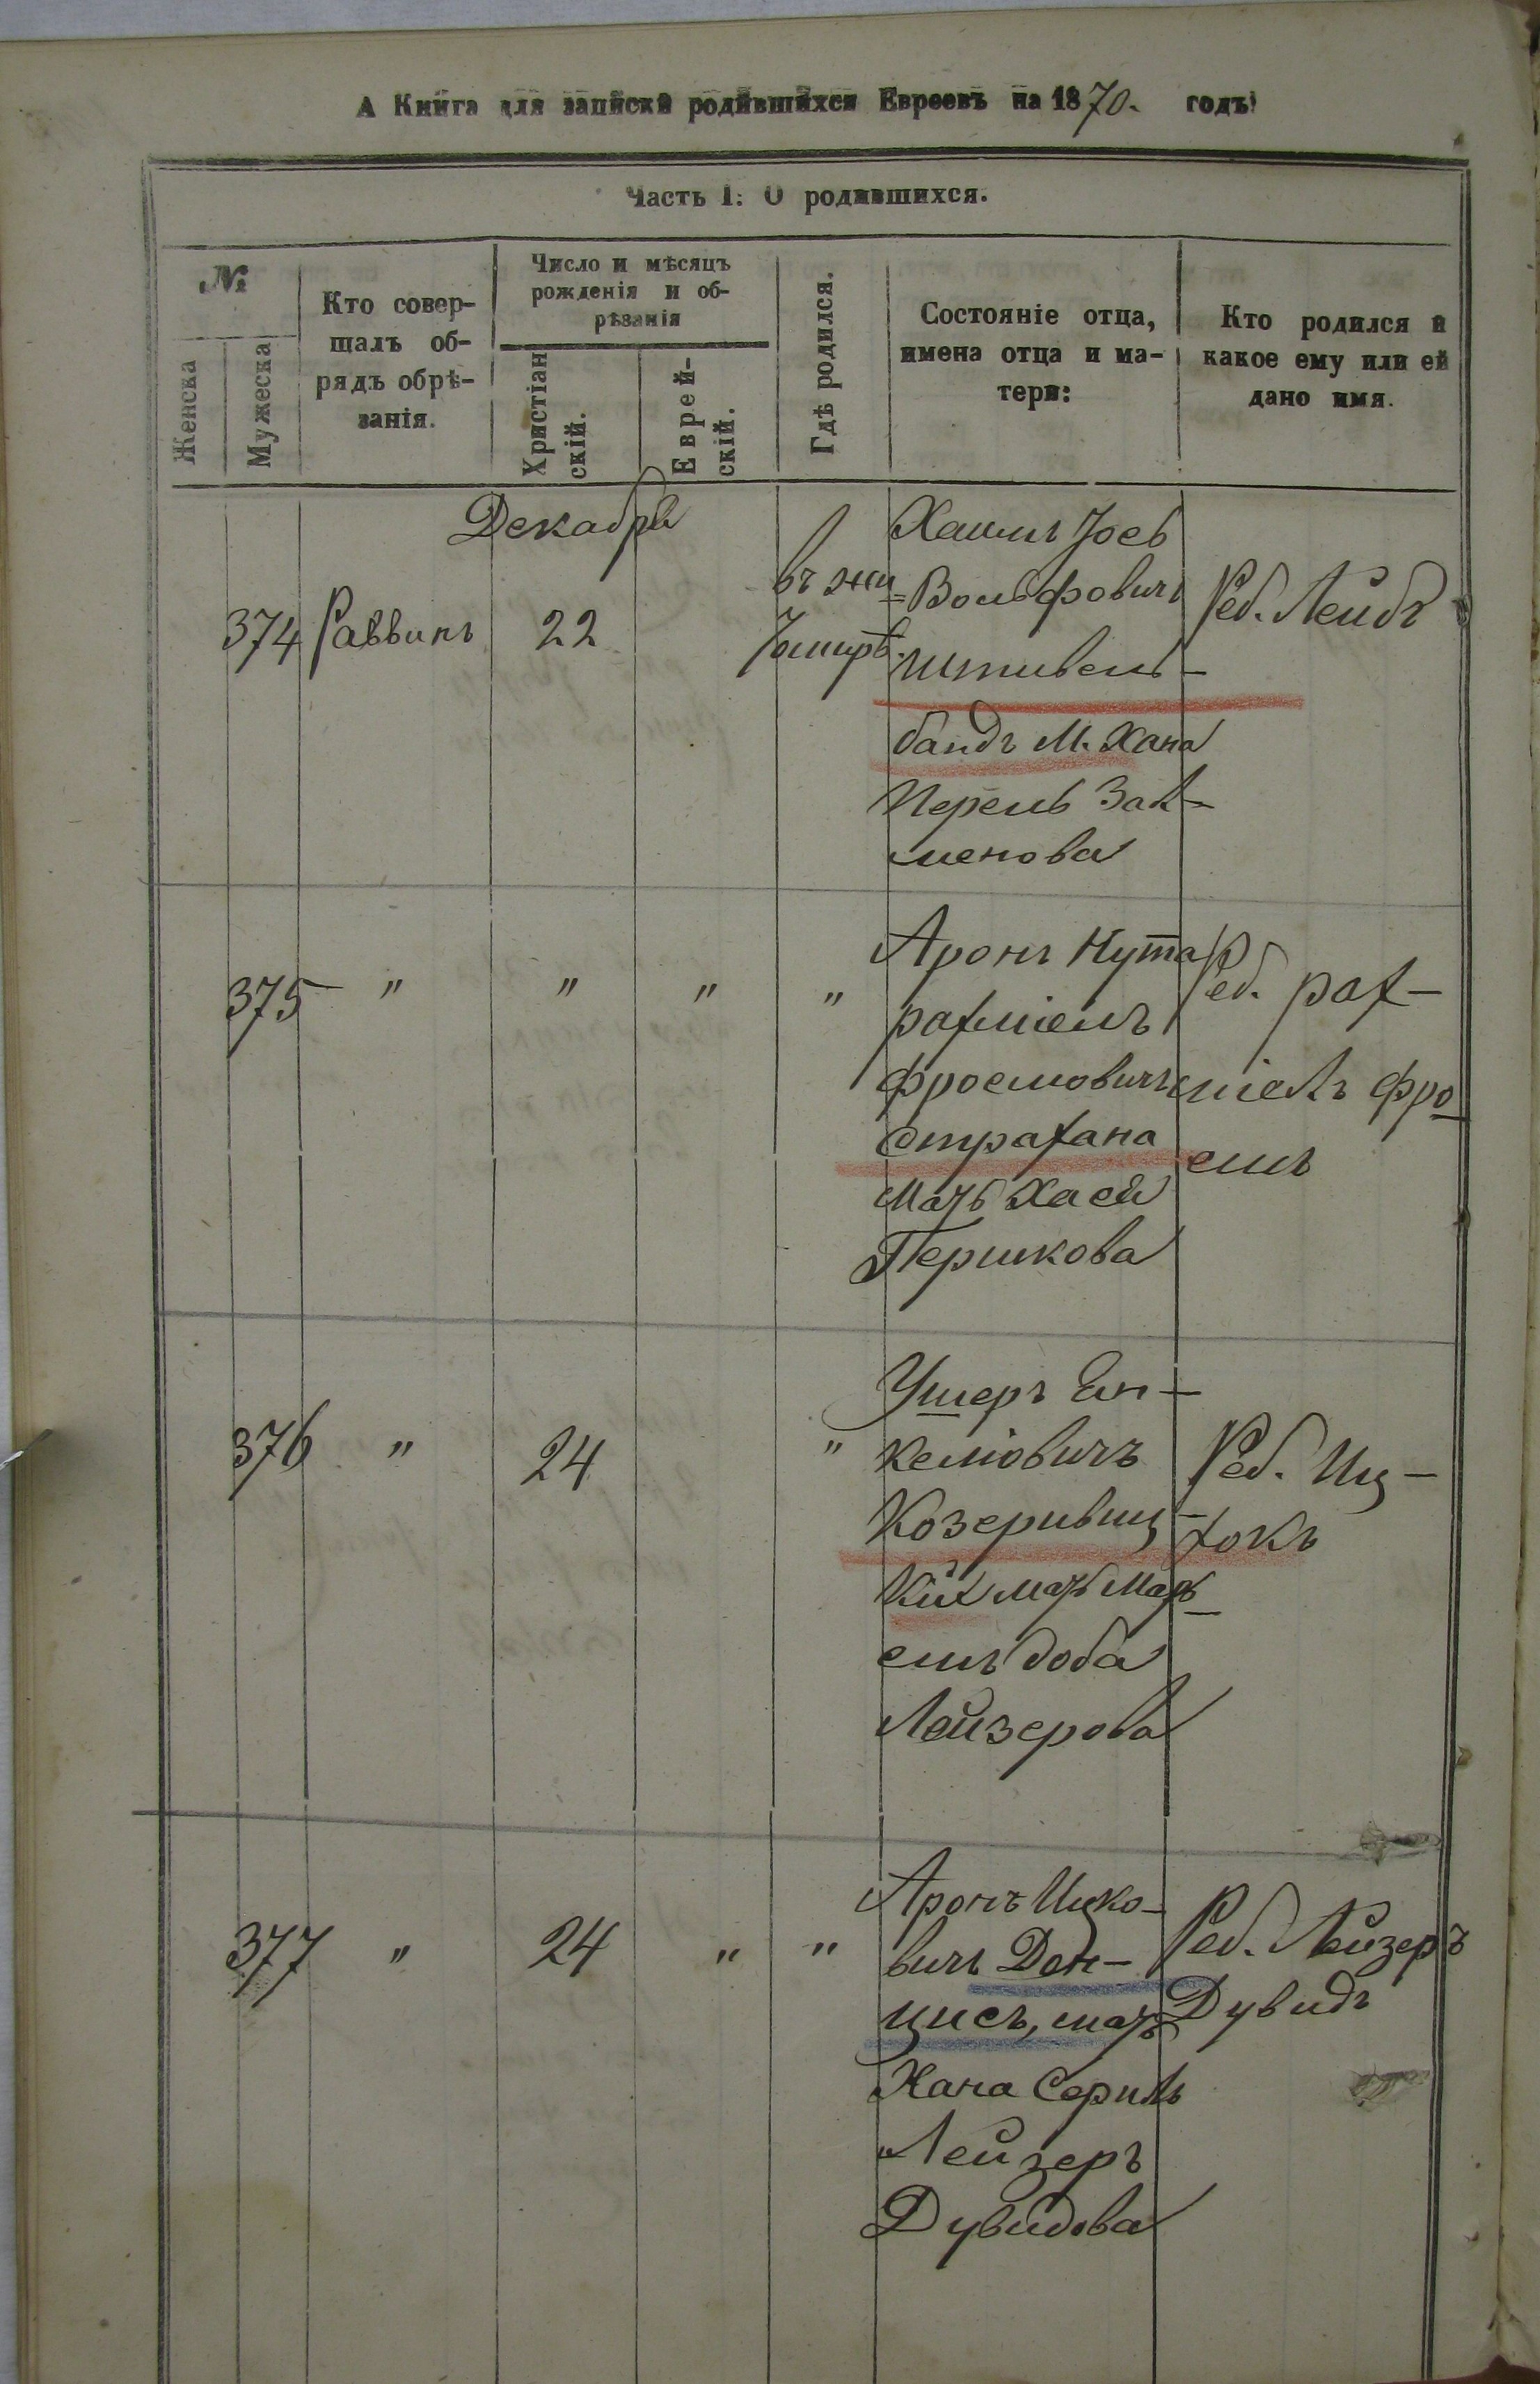 А Книга для записки родившихся Евреевъ на 1870. годъ
Часть I: О родившихся.
№
Женска
Мужеска
Кто совер-
шалъ об-
рядъ обрѣ-
занія.
Число и мѣсяцъ
рожденія и об-
рѣзанія
Христіан
скій.
Еврей-
скій.
Гдѣ родился.
Состояніе отца,
имена отца и ма-
тери:
Кто родился и
какое ему или ей
дано имя.
Декабря
374 Раввинъ 22
въ Жи
томирѣ
Вольфовичъ
Штивель-
бандъ М. Хана
Перель Зал-
менова
Реб. Лейбъ
375 " " " "
Аронъ Нута
рахміель
Фроемовичъ
Страхана
Мать Хася
Гершкова
Реб. рах-
міель Фро
емъ
376 " 24 "
Ушеръ Ян-
келіовичъ
Козеривиц-
Кій мать Марь
емъ доба
Лейзерова
Реб. Иц-
хокъ
377 " 24 " "
Аронъ Ицко-
вичъ Ден-
цисъ, мать
Хана Серилъ
Лейзеръ
Дувидова
Реб. Лейзеръ
Дувидъ